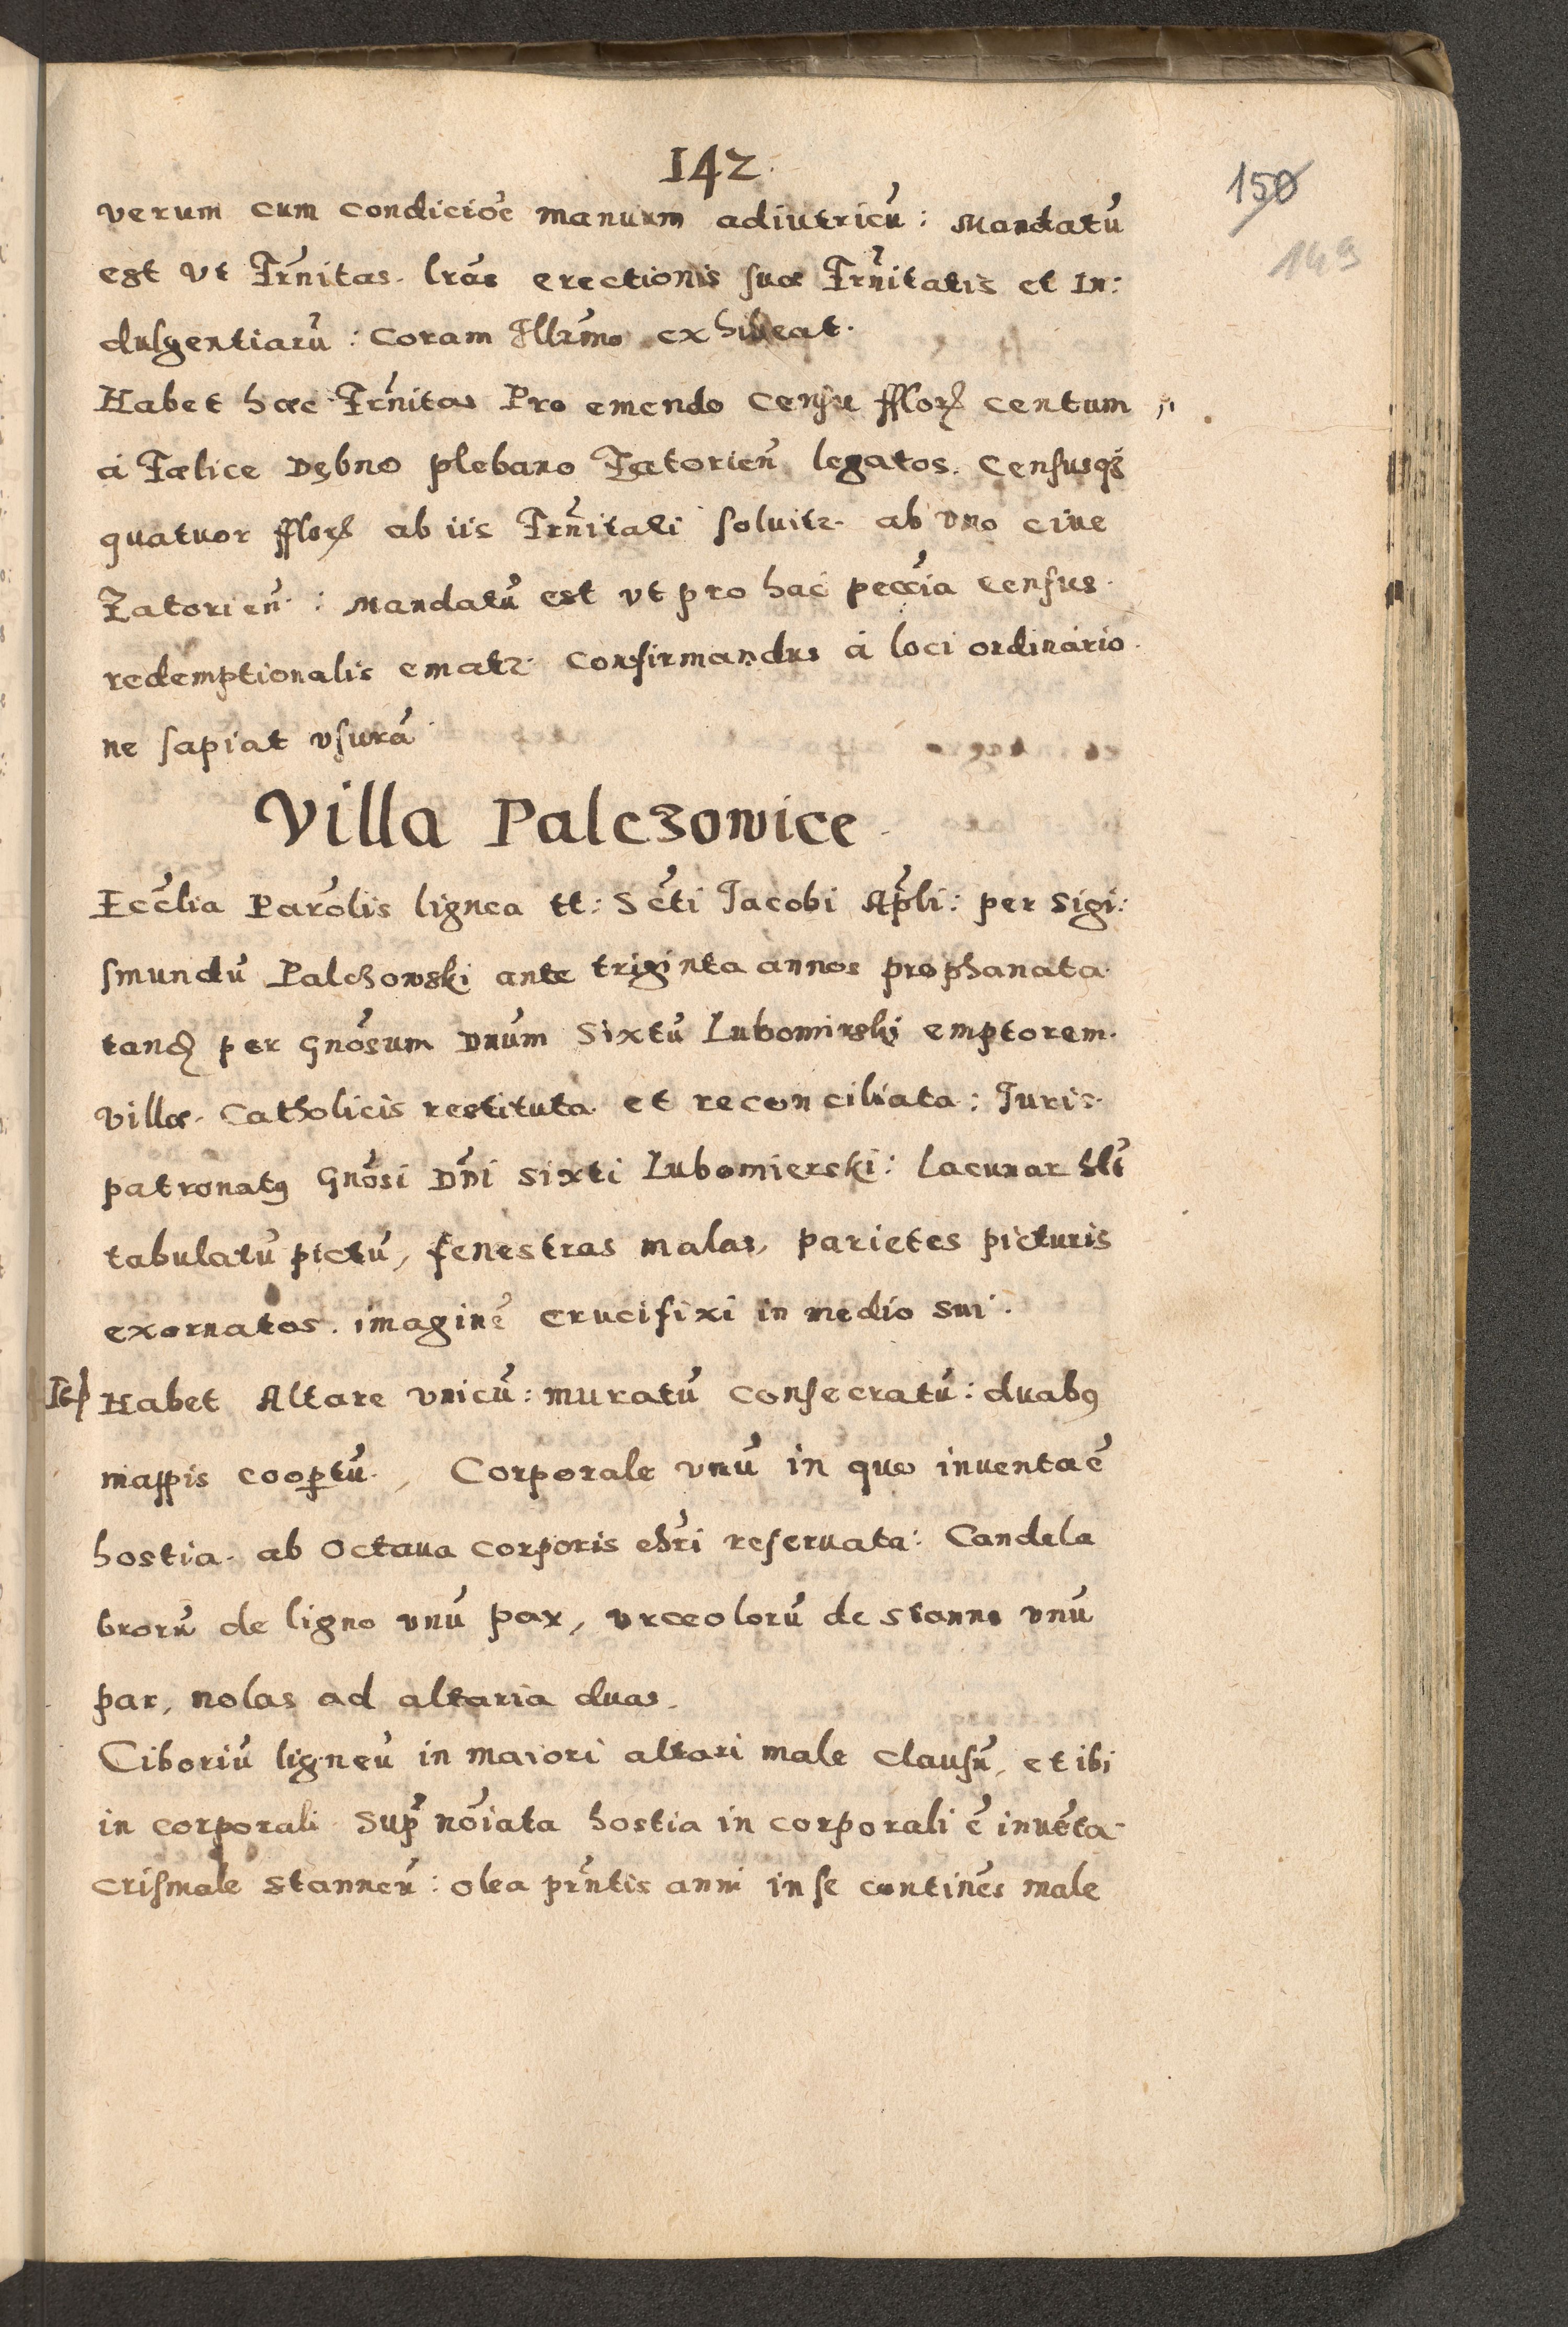 142.
150
149
verum cum condicioē manuum adiutricū: Mandatū
est vt Frñitas. lr̃as erectionis suæ Frñitatis et In:
dulgentiarū: coram Illr̃mo exhibeat.
Habet hæc Frñitas Pro emendo censu fflorꝫ centum
á Fælice Dębno plebano Zatorieñ legatos. censusqꝫ
quatuor fflorꝫ ab iis Frñitati soluitr. ab vno ciue
Zatorieñ: Mandatū est vt pro hac peccĩa census
redemptionalis ematr. confirmandus á loci ordinario.
ne sapiat vsurā
Villa Palczowice.
Ecc̄lia Parōlis lignea tt: Sc̄ti Jacobi Ap̄li: per Sigi:
smundū Palczowski ante triginta annos prophanata
tandꝫ per Gnōsum Dnūm Sixtū Lubomirski emptorem.
villæ. Catholicis restituta et reconciliata: Juris.
patronatꝰ Gnōsi Dn̄i Sixti Lubomierski: lacunar hēt
tabulatū pictū, fenestras malas, parietes picturis
exornatos. imaginē crucifixi in medio sui.
Habet Altare vnicū: muratū consecratū: duabꝰ
mappis coop̱tū., Corporale vnū in quo inventa ē
hostia. ab Octaua corporis chr̄i reseruata: Candela
brorū de ligno vnū par, vrceolorū de stanno vnū
par, nolas ad altaria duas.
Ciboriū ligneū in maiori altari male clausū, et ibi
in corporali sup̄ nōiata hostia in corporali ē invēta
crismale stanneū: olea prn̄tis anni in se continēs male